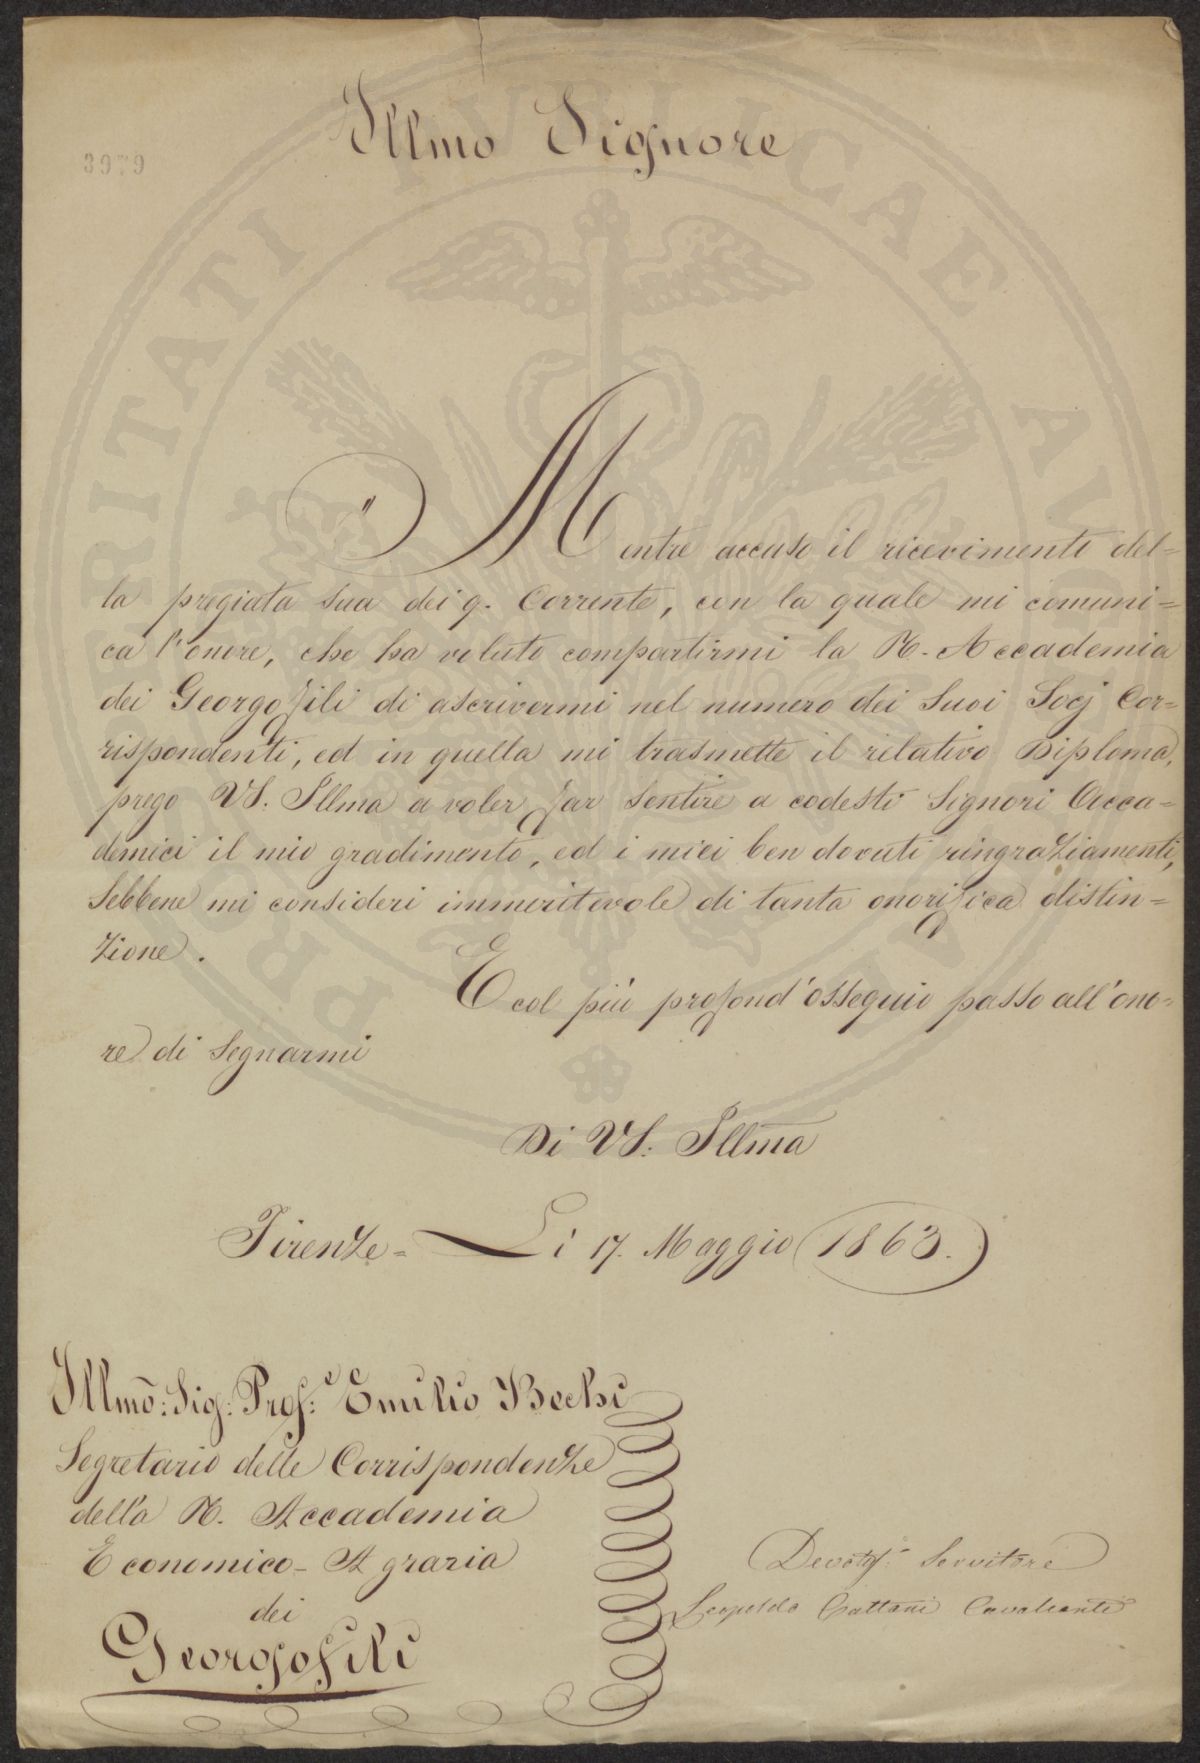 Illmo Signore
3979
Mentre accuso il ricevimento del=
la pregiata sua dei 9. Corrente, con la quale mi comuni=
ca l'onore, che ha voluto compartirmi la R. Accademia
dei Georgofili di ascrivermi nel numero dei Suoi Socj Cor=
rispondenti, ed in quella mi trasmette il relativo Diploma,
prego VS. Illma a voler far sentire a codesti Signori Acca=
demici il mio gradimento, ed i miei ben dovuti ringraziamenti,
sebbene mi consideri immeritevole di tanta onorifica distin=
zione.
E col più profond'ossequio passo all'ono=
re di segnarmi
Di VS. Illma
Firenze = Li 17. Maggio 1863.
Illmo: Sig: Prof:e Emilio Bechi
Segretario delle Corrispondenze
della R. Accademia
Economico-Agraria
dei
Georgofili
Servitore
Leopoldo Cattani Cavalcanti
PROSPERITATI PVBLICAE AVGENDAE